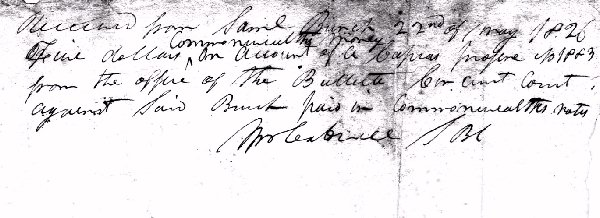 Received from Saml Bunch 22nd of May 1826
Commonwealths money
Five dollars, on account of a Capias profine No 1883
from the office of the Bullitt Circuit Court,
against Said Bunch paid in Commonwealths notes
SBC